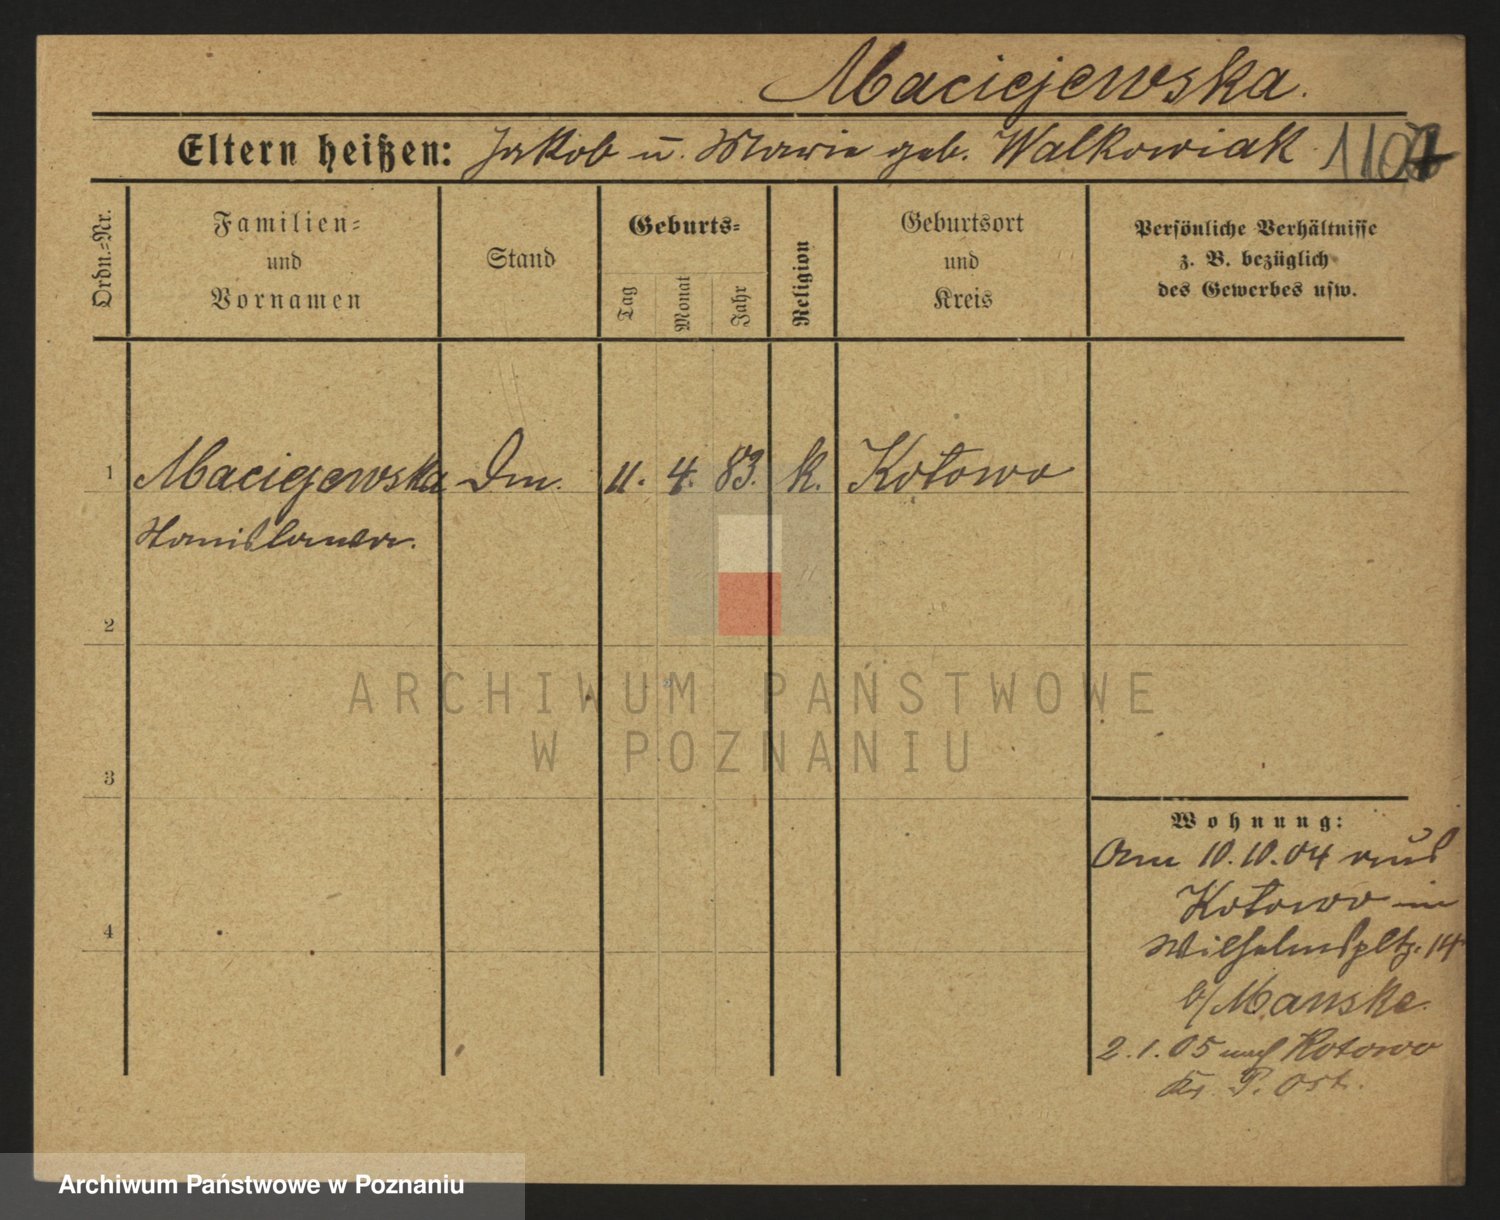 Maciejewska.
Eltern heißen: Jakob u. Marie geb. Walkowiak
Ordn.-Nr.
Familien- und Vornamen
Stand
Geburts-
Tag
Monat
Jahr
Religion
Geburtsort und Kreis
Persönliche Verhältnisse
z. B. bezüglich
des Gewerbes usw.
1 Maciejewska Dm. 11. 4. 83. k. Kotowo
Stanislawa.
2
3
4
Wohnung:
Am 10.10.04 aus
Kotowo in
Wilhelmspltz. 14
b/Manske.
2.1.05 nach Kotowo
Kr. P. Ost.
ARCHIWUM PAŃSTWOWE
W POZNANIU
Archiwum Państwowe w Poznaniu